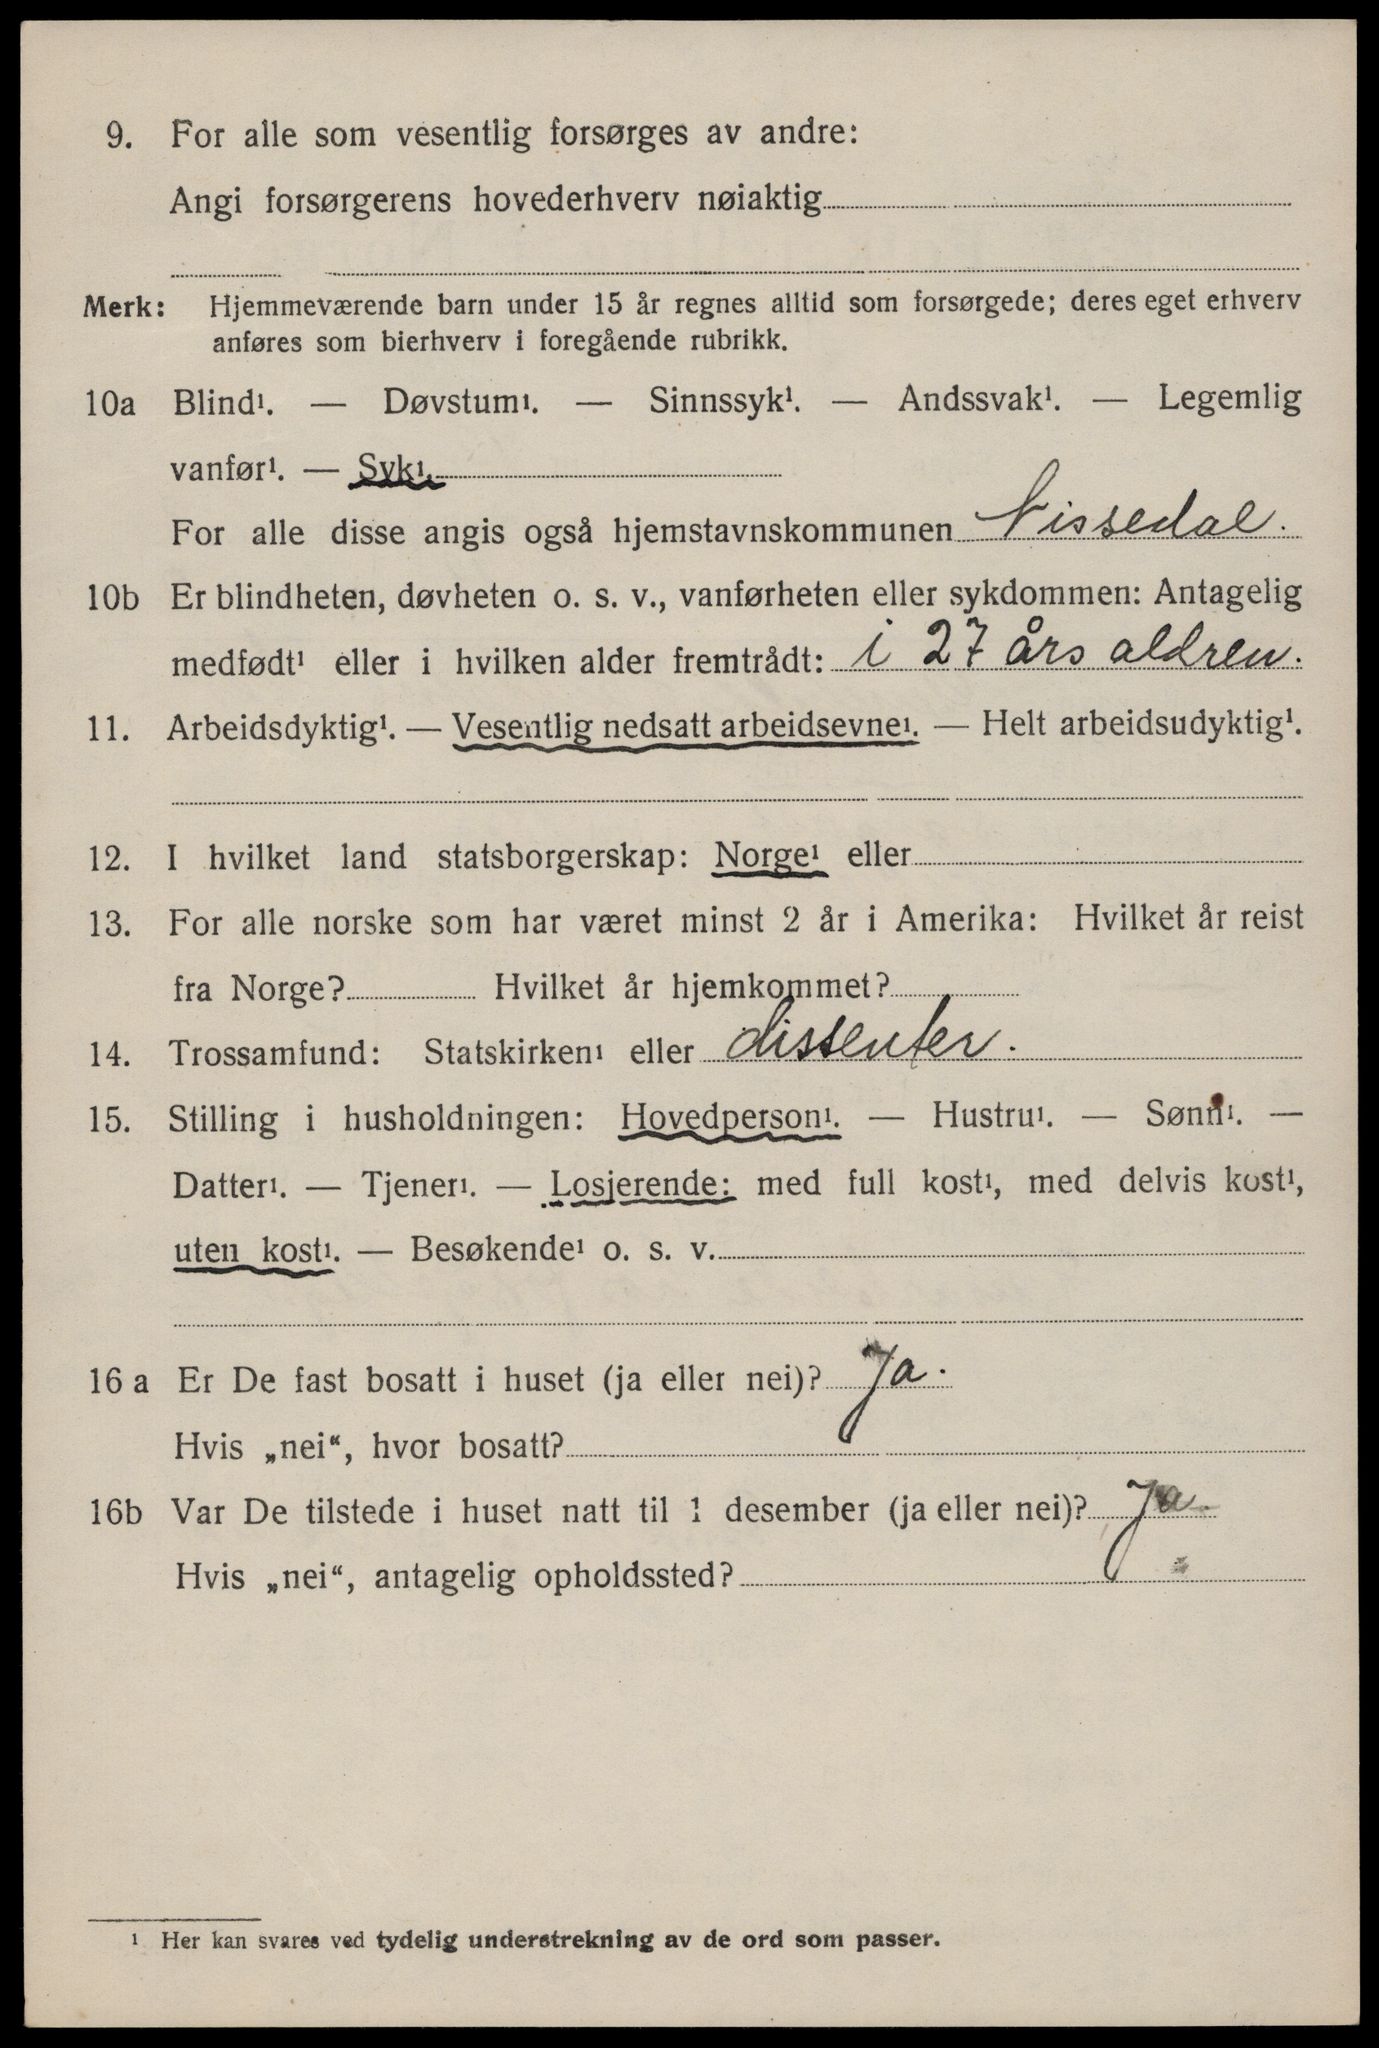 9. For alle som vesentlig forsørges av andre:
Angi forsørgerens hovederhverv nøiaktig
Merk: Hjemmeværende barn under 15 år regnes alltid som forsørgede; deres eget erhverv
anføres som bierhverv i foregående rubrikk.
10a Blind¹. — Døvstum¹. — Sinnssyk¹. — Andssvak¹. — Legemlig
vanfør¹. — Syk¹.
For alle disse angis også hjemstavnskommunen Nissedal.
10b Er blindheten, døvheten o. s. v., vanførheten eller sykdommen: Antagelig
medfødt¹ eller i hvilken alder fremtrådt: i 27 års aldren.
11. Arbeidsdyktig¹. — Vesentlig nedsatt arbeidsevne¹. — Helt arbeidsudyktig¹.
12. I hvilket land statsborgerskap: Norge¹ eller
13. For alle norske som har været minst 2 år i Amerika: Hvilket år reist
fra Norge? Hvilket år hjemkommet?
14. Trossamfund: Statskirken¹ eller dissenter.
15. Stilling i husholdningen: Hovedperson¹. — Hustru¹. — Sønn¹. —
Datter¹. — Tjener¹. — Losjerende: med full kost¹, med delvis kost¹,
uten kost¹. — Besøkende¹ o. s. v.
16 a Er De fast bosatt i huset (ja eller nei)? Ja.
Hvis „nei“, hvor bosatt?
16b Var De tilstede i huset natt til 1 desember (ja eller nei)? Ja.
Hvis „nei“, antagelig opholdssted?
¹ Her kan svares ved tydelig understrekning av de ord som passer.